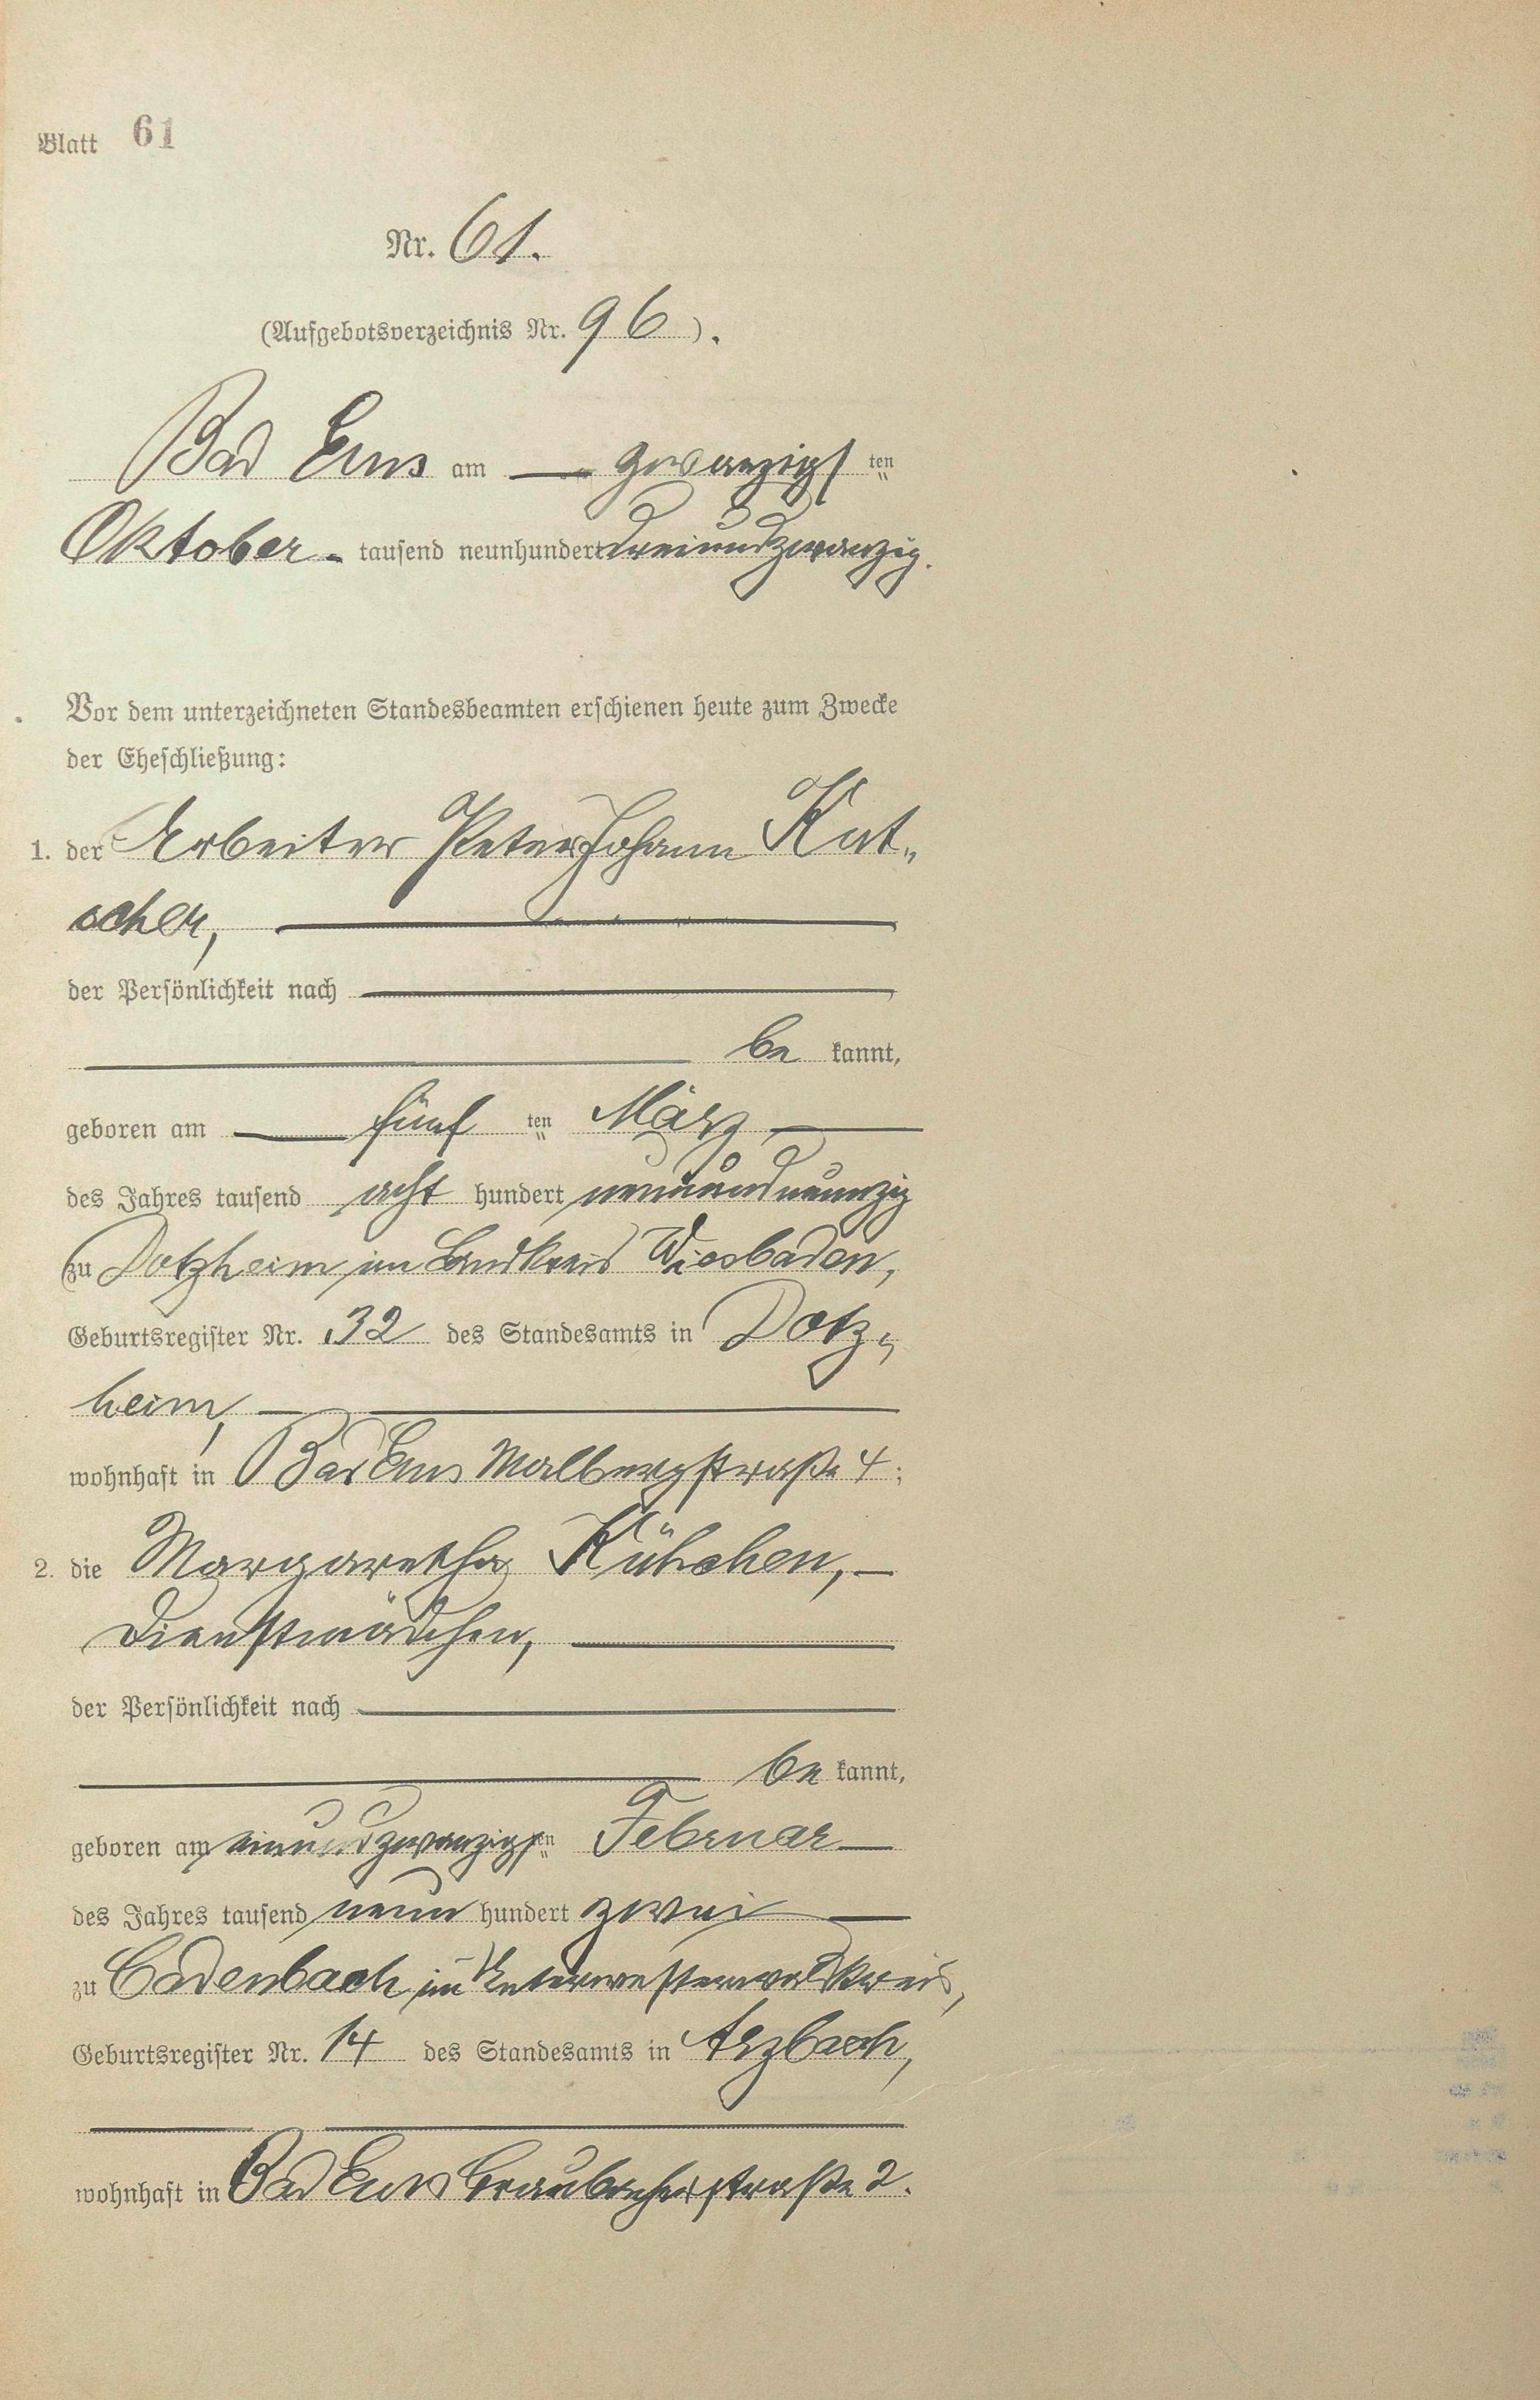 Blatt 61
Nr. 61.
(Aufgebotsverzeichnis Nr. 96).
Bad Ems am — zwanzigsten
Oktober - tausend neunhundert dreiundzwanzig.
Vor dem unterzeichneten Standesbeamten erschienen heute zum Zwecke
der Eheschließung:
1. der Arbeiter Peter Johann Kat-
scher,
der Persönlichkeit nach
be kannt,
geboren am fünf ten März
des Jahres tausend acht hundert neunundneunzig
zu Dotzheim im Landkreis Wiesbaden,
Geburtsregister Nr. 32 des Standesamts in Dotz-
heim,
wohnhaft in Bad Ems Malbergstraße 4;
2. die Margaretha Kühchen,
Dienstmädchen,
der Persönlichkeit nach
be kannt,
geboren am einundzwanzigsten Februar
des Jahres tausend neun hundert zwei
zu Cadenbach im Unterwesterwaldkreis,
Geburtsregister Nr. 14 des Standesamts in Arzbach,
wohnhaft in Bad Ems Braubacherstraße 2.